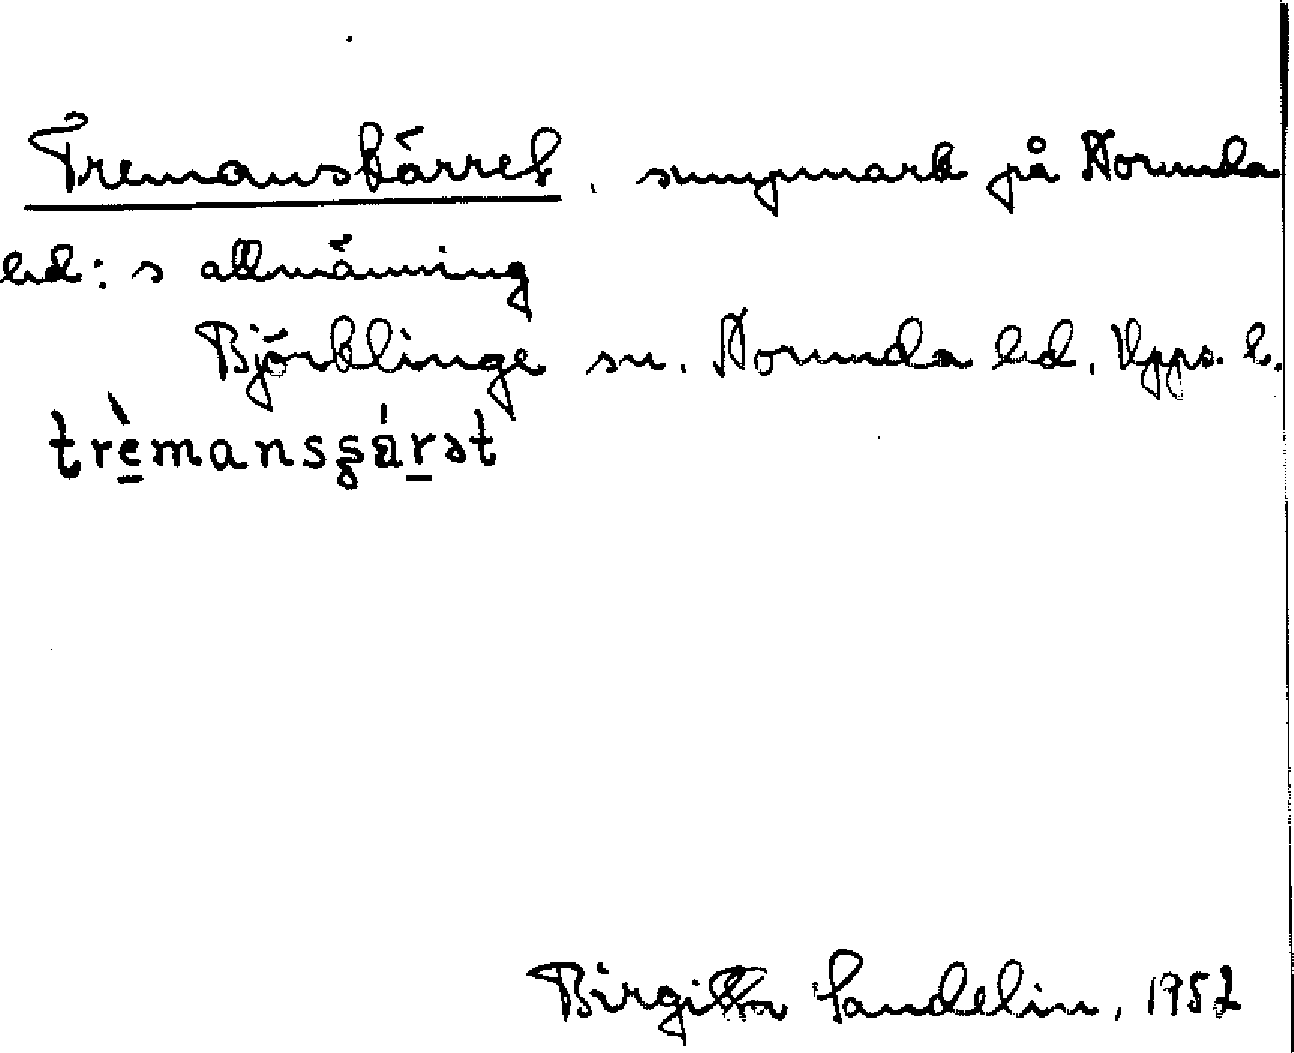 Tremanskärret, sumpmark på Norunda
hd:s allmänning
Björklinge sn. Norunda hd, Upps. l.
trèmansʂárət
Birgitta Sandelin, 1952